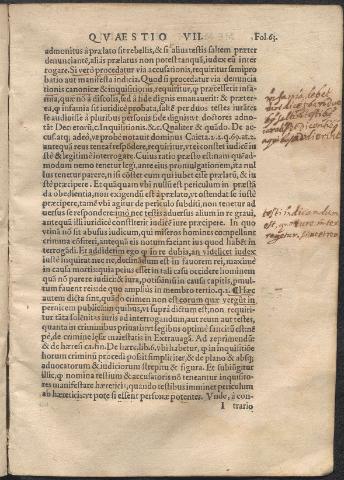 QVAESTIO VII. Fol. 63.
admonitus à prælato sit rebellis, & si alius testis saltem præter
denunciantē, aliàs prælatus non potest tanquā iudex eū inter
rogare. Si verò procedatur via accusationis, requiritur semipro
batio aut manifesta indicia. Quod si procedatur via denuncia
tionis canonicæ & inquisitionis, requiritur, q præcesserit infa-
mia, quæ nō à discolis, sed à fide dignis emanauerit: & præte-
rea, q infamia sit iuridicè probata, saltē per duos testes iurātes
se audiuisse à pluribus personis fide dignis: vt doctores adno-
tāt Decretorū, c. Inquisitionis. & c. Qualiter & quādo. De ac-
cusat. q; adeò, ve probè notauit dominus Caieta. 2. 2. q. 69. ar. 2.
antequā reus teneat respōdere, requiritur, vt ei constet iudicē iu
stè & legitimè interrogare. Cuius ratio præsto est: nam quēad-
modum nemo tenetur legi, ante eius promulgationem, ita nul
lus tenetur parere, nisi cōstet eum qui iubet esse iudicē, & iu
stè præcipere. Et quāquam vbi nullū est periculum in præsti
da obedientia, non exigendū est à prælato, vt ostendat se iustè
præcipere, tamē vbi agitur de periculo subditi, non tenetur ad
uersus se respondere: imò nec testis aduersus alium in re graui,
antequā sibi iuridicè constiterit iudicē iure præcipere. In quo
vtinā nō sit abusus iudicum, qui miseros homines compellunt
crimina cōfiteri, antequā eis notum faciant ius quod habēt in
terrogādi. Et addiderim ergo q in re dubia, an videlicet iudex
iustè inquirat an ec ne, declinādum est in fauorem rei, maximè
in causa mortis: quia peius esset in tali casu occidere hominem
quā nō parere iudici: & iura, potissimū in causa capitis, pmul-
tum fauent reis: de quo ampliùs in membro tertio. q. 2. ¶ Hæc
autem dicta sint, quādo crimen non est eorum quæ vergūt in
perniciem publicam: in quibus, vt suprà dictum est, non requiri-
tur tāta solēnitas iuris ad interrogandum, aut reum aut testes,
quanta in criminibus priuatis: vt legibus optimè sancitū est: nē
pè, de crimine læsæ maiestatis in Extrauagā. Ad reprimendū
& de hæresi ca. fin. De hære. lib. 6. vbi habetur, q in inquisitiōe
horum criminū procedi possit simpliciter, & de plano & absq;
aduocatorum & iudiciorum strepitu & figura. Et subiūgitur
illic, q nomina testium & accusatoris nō teneantur inquisito-
res manifestare hæreticis, quando testibus imminet periculum
ab hæreticis: vt pote si essent personæ potentes. Vnde, à con-
I trario